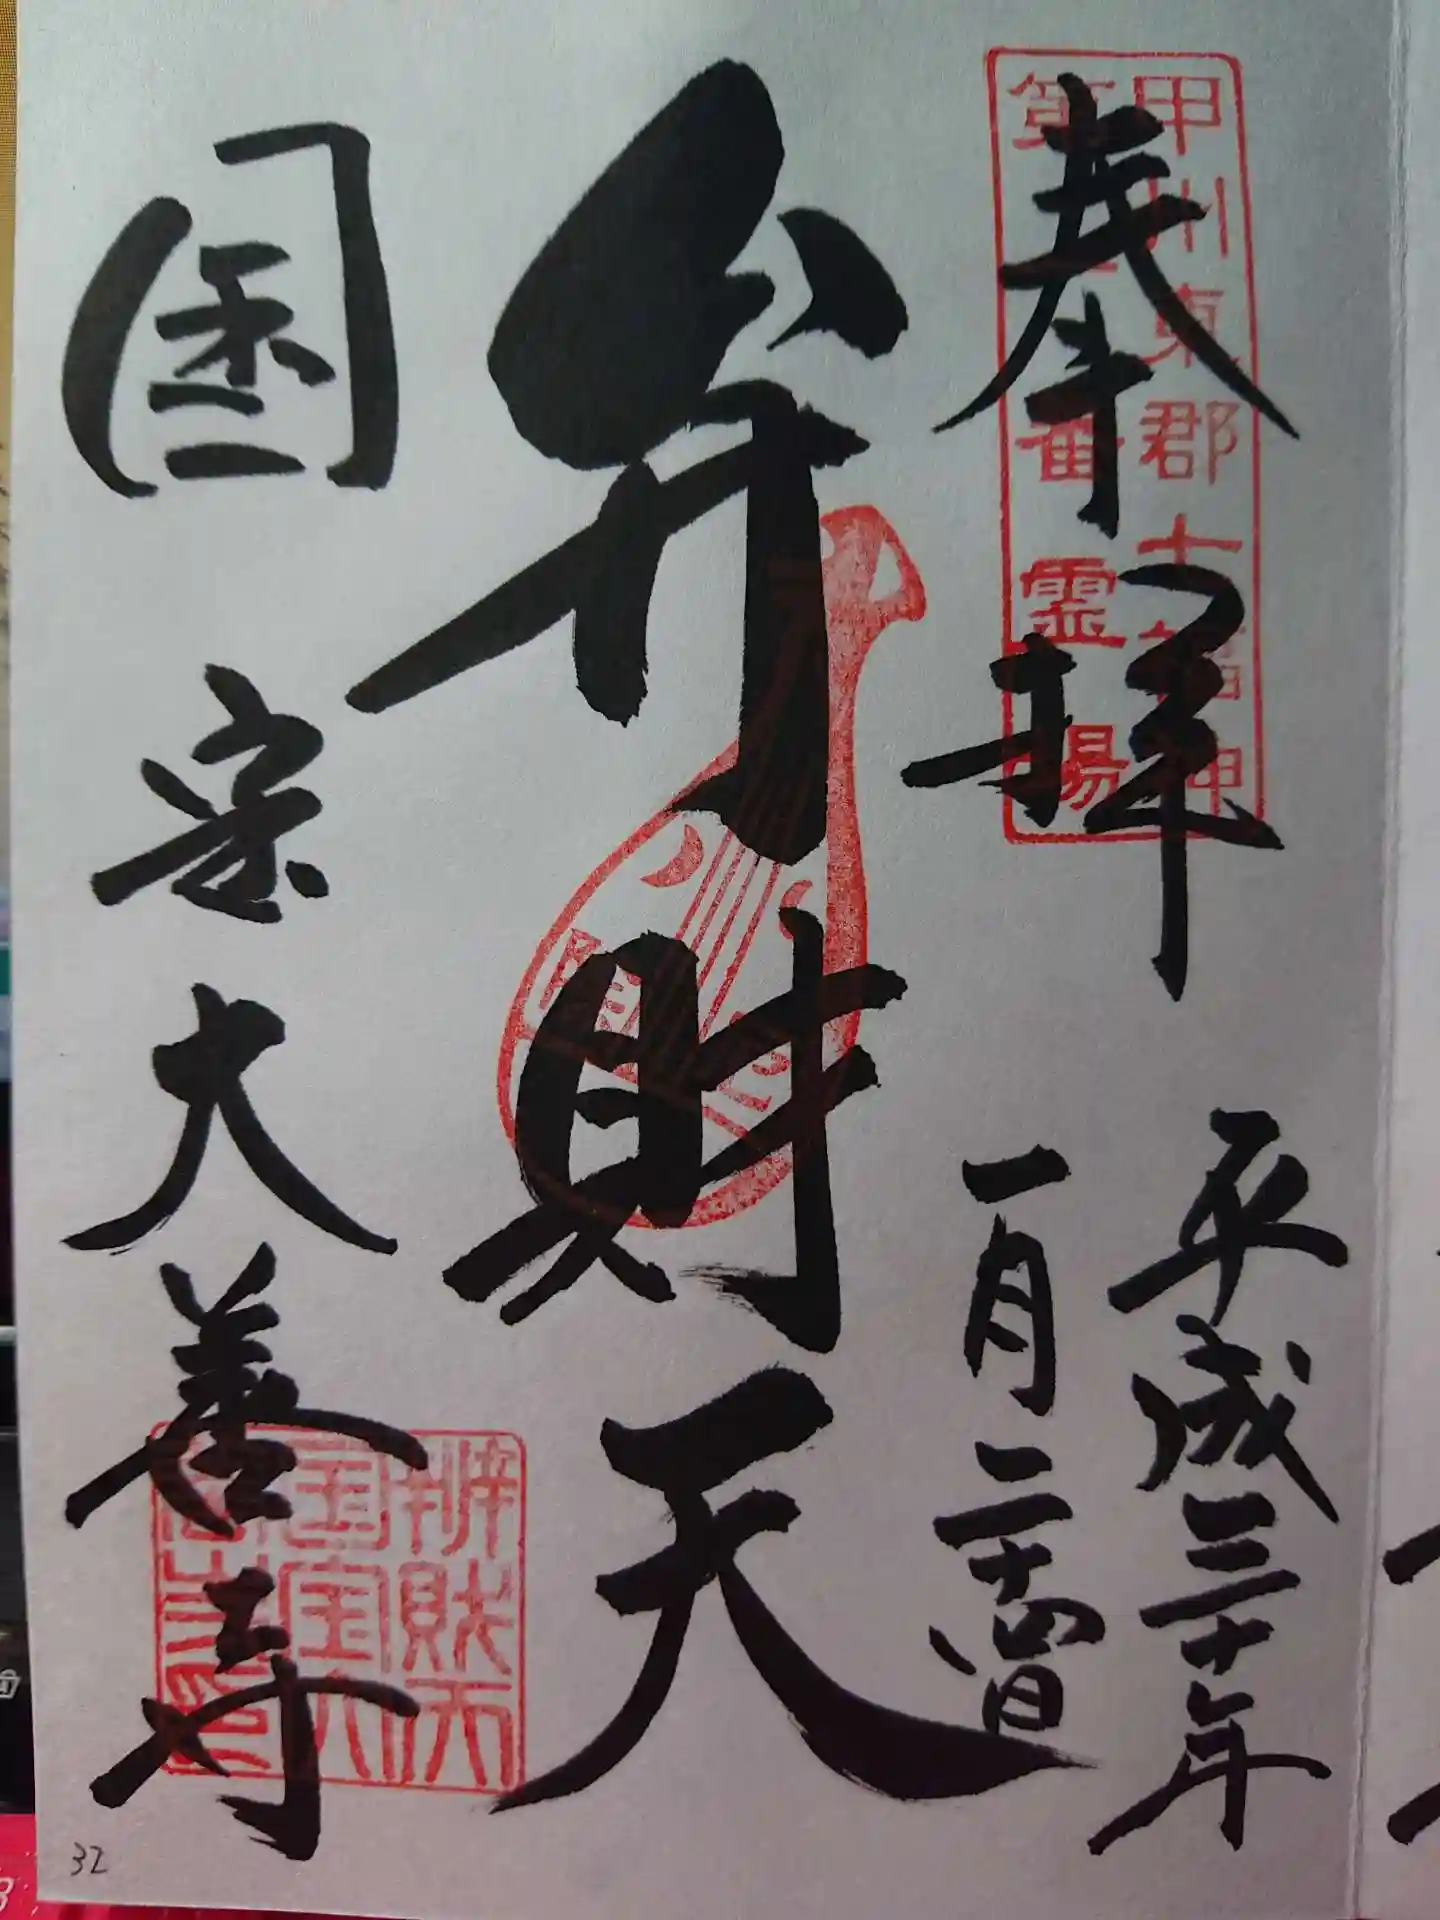 奉拝
甲州東郡七福神
第 番霊場
平成三十年
一月二十四日
弁財天
辨財天
国宝大善寺
32